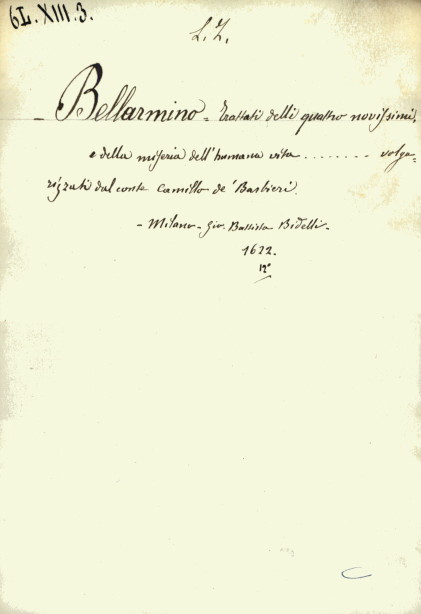 6L.XIII.3.
L.Z.
- Bellarmino - Trattati delli quattro novissimi,
e della miseria dell'humana vita ........ volga=
rizzati dal conte Camillo de' Barbieri.
- Milano - Gio. Battista Bidelli -
1622.
12°